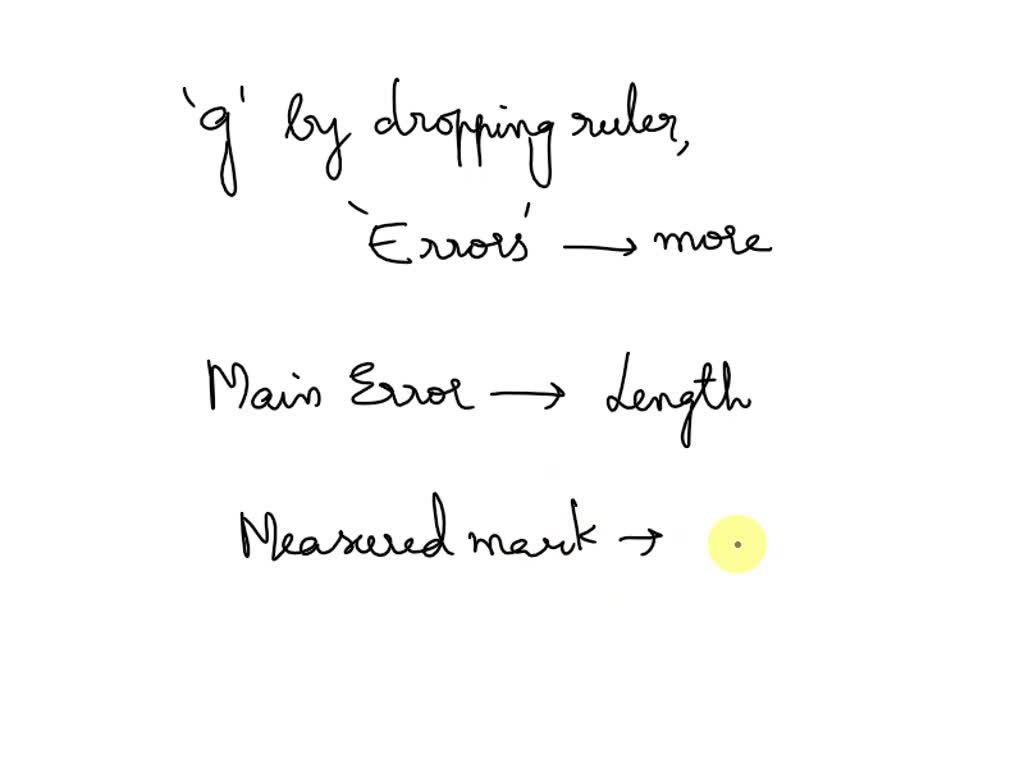 'g' by dropping ruler,
'Errors' → more
Main Error → Length
Measured mark →